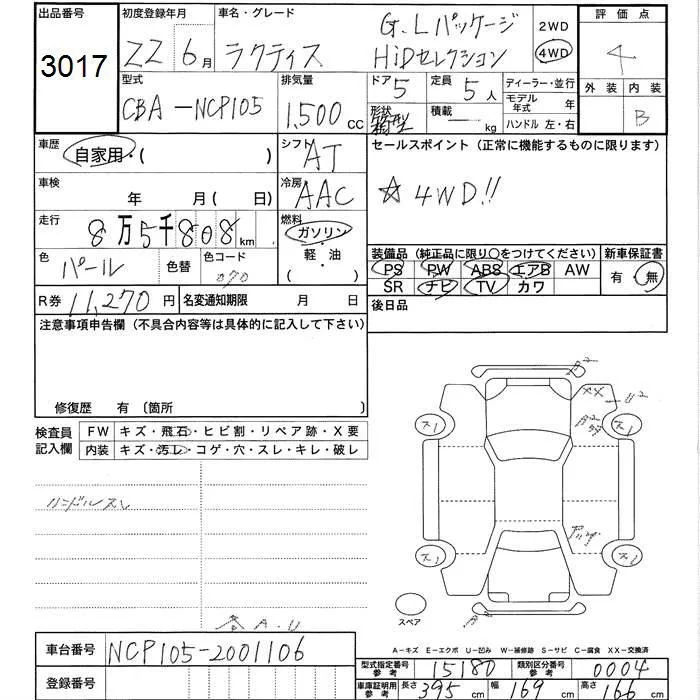 出品番号 初度登録年月 車名・グレード 評価点
3017
22 6月 ラクティス G.Lパッケージ HiDセレクション 2WD 4WD 4
型式 排気量 ドア 定員 ディーラー・並行 外装 内装
CBA-NCP105 1,500cc 5 5人 モデル年式 年
形状 箱型 積載 ー kg ハンドル 左・右 B
車歴 自家用・( ) シフト AT セールスポイント(正常に機能するものに限ります)
車検 年 月(日) 冷房 AAC ☆4WD!!
走行 8万5千808km 燃料 ガソリン・軽・油・( )
色 パール 色替 色コード 070
装備品(純正品に限り○をつけてください) 新車保証書
PS PW ABS エアB AW 有・無
SR ナビ TV カワ
R券 11,270円 名変通知期限 月 日 後日品
注意事項申告欄(不具合内容等は具体的に記入して下さい)
修復歴 有〔箇所 〕
検査員記入欄 FW キズ・飛石・ヒビ割・リペア跡・X要
内装 キズ・汚レ・コゲ・穴・スレ・キレ・破レ
ハンドルスレ
A2
XX U2
A2
ス1 ス1
ス1 ス1
スペア
A2
各A.U
A-キズ E-エクボ U-凹み W-補修跡 S-サビ C-腐食 XX-交換済
車台番号 NCP105-2001106
登録番号
型式指定番号参考 15180 類別区分番号参考 0004
車庫証明用参考 長さ 395cm 幅 169cm 高さ 166cm